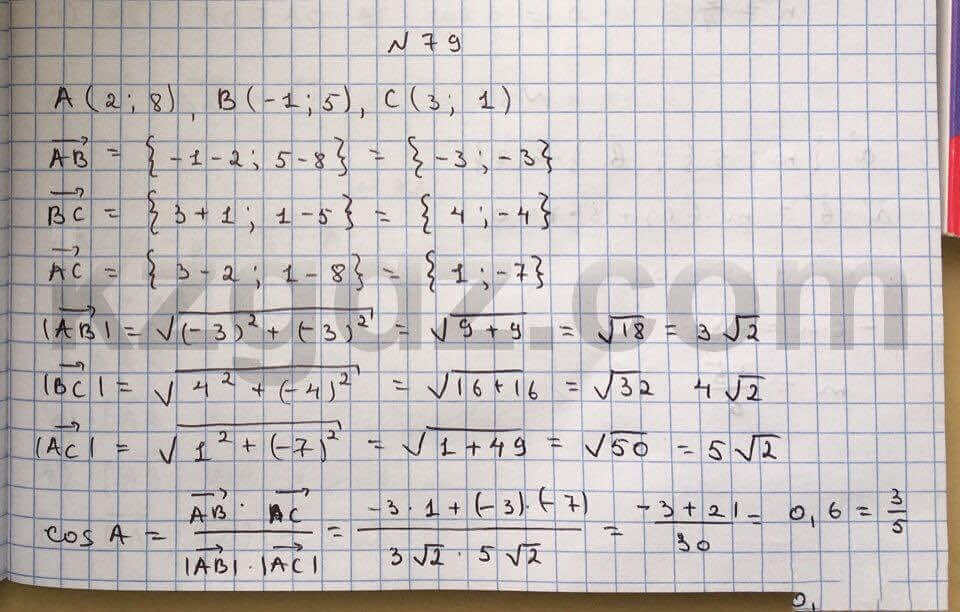 N 79
A(2; 8), B(-1; 5), C(3; 1)
AB = {-1-2; 5-8} = {-3; -3}
BC = {3+1; 1-5} = {4; -4}
AC = {3-2; 1-8} = {1; -7}
|AB| = √((-3)² + (-3)²) = √(9+9) = √18 = 3√2
|BC| = √(4² + (-4)²) = √(16+16) = √32 4√2
|AC| = √(1² + (-7)²) = √(1+49) = √50 = 5√2
cos A = (AB · AC) / (|AB| · |AC|) = (-3·1 + (-3)·(-7)) / (3√2 · 5√2) = (-3+21) / 30 = 0,6 = 3/5
kzgdz.com